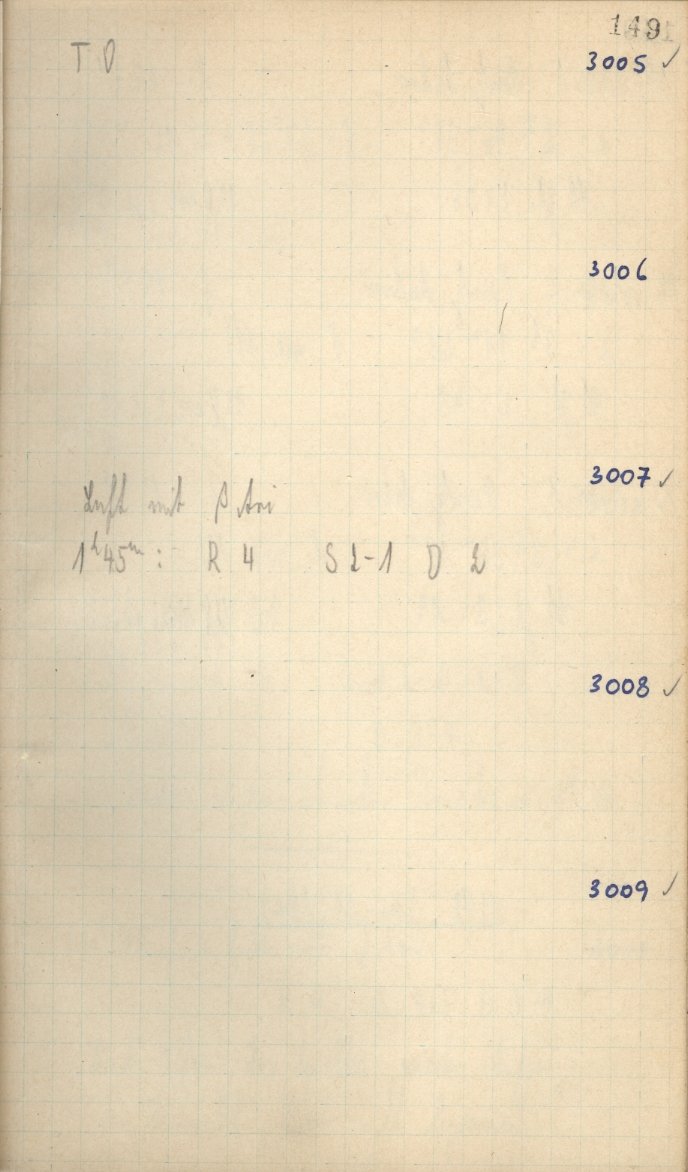 149
T D
3005 ✓
3006
3007 ✓
Luft mit β Ari
1ʰ45ᵐ: R 4 S 2-1 D 2
3008 ✓
3009 ✓